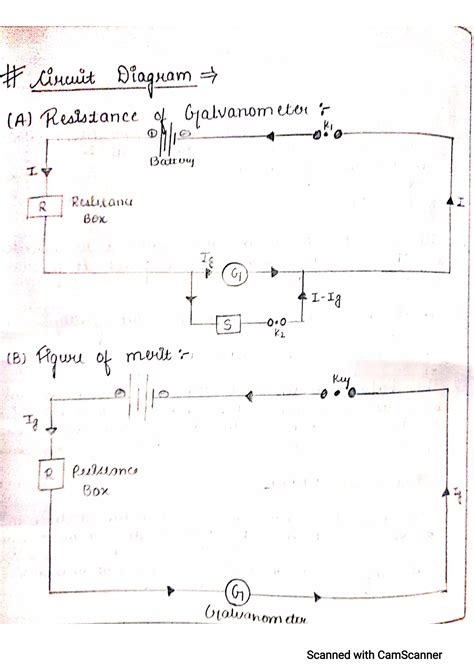 # Circuit Diagram ⇒
(A) Resistance of Galvanometer :-
K1
Battery
I
R
Resistance
Box
I
Ig
G
I-Ig
S
K2
(B) Figure of merit :-
Key
Ig
R
Resistance
Box
Ig
G
Galvanometer
Scanned with CamScanner